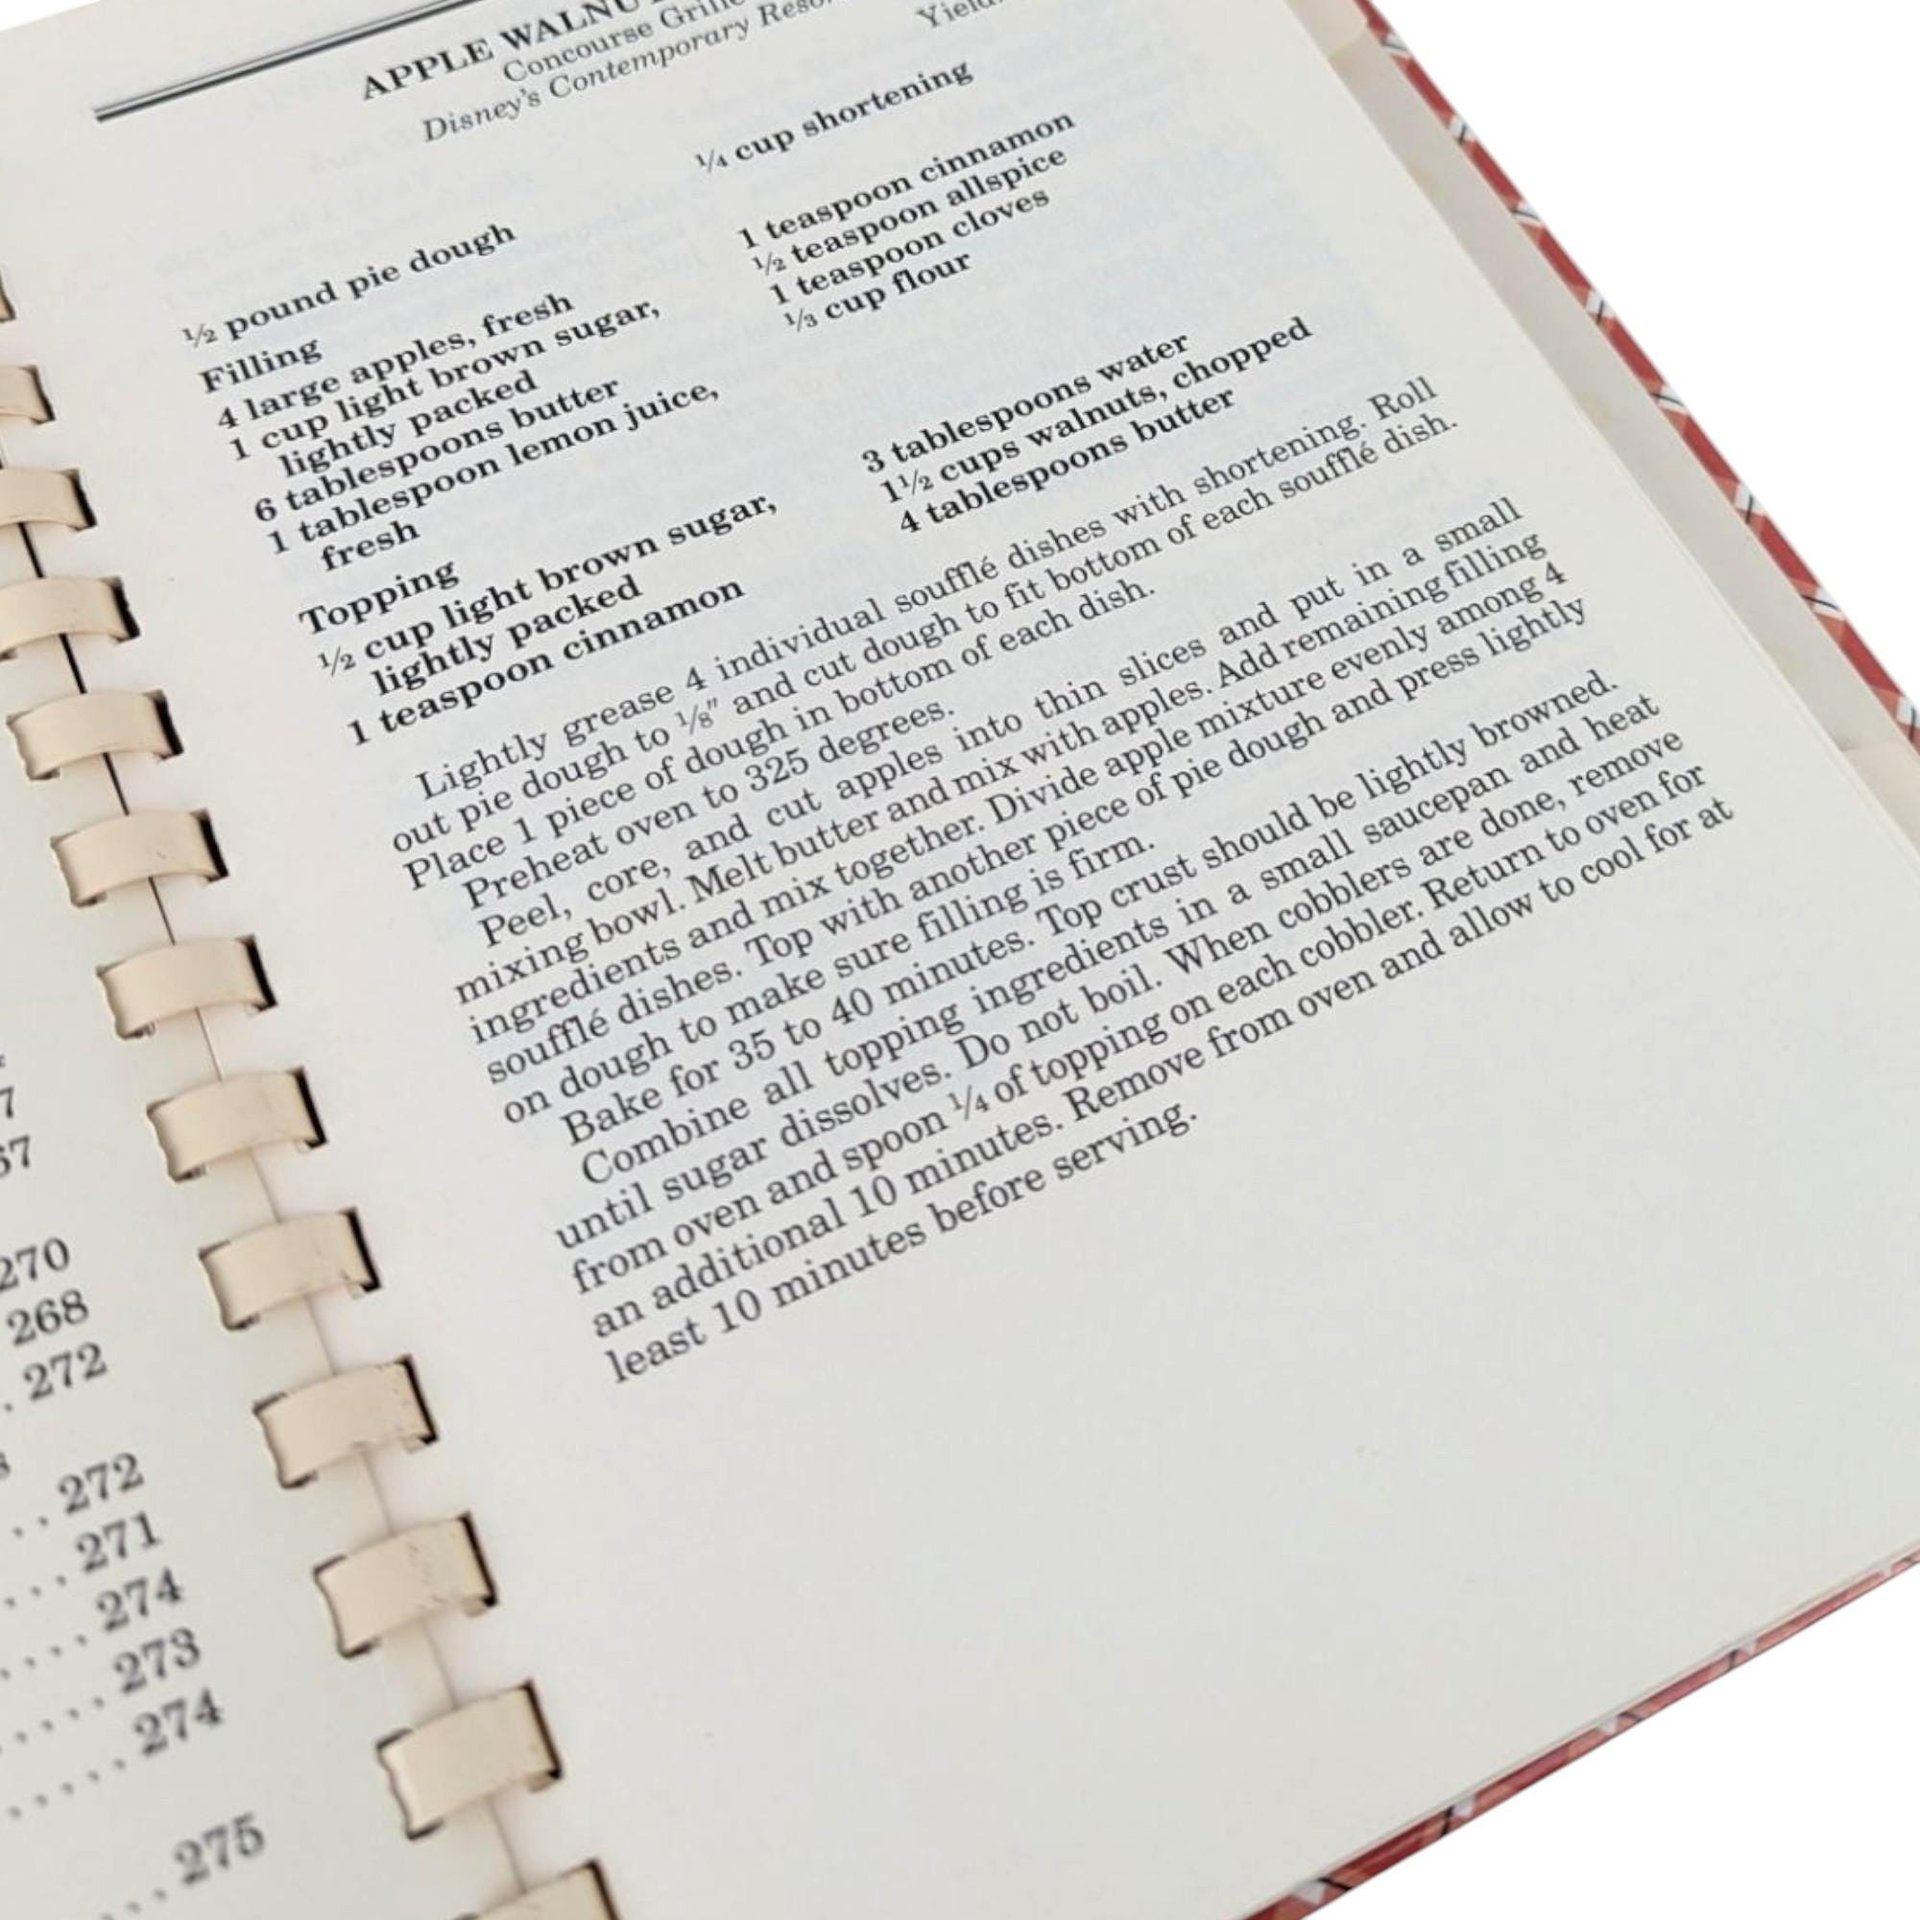 APPLE WALNU
Concourse Grille
Disney's Contemporary Resor
Yield:
½ pound pie dough
¼ cup shortening
Filling
4 large apples, fresh
1 cup light brown sugar,
lightly packed
6 tablespoons butter
1 tablespoon lemon juice,
fresh
1 teaspoon cinnamon
½ teaspoon allspice
1 teaspoon cloves
⅓ cup flour
Topping
½ cup light brown sugar,
lightly packed
1 teaspoon cinnamon
3 tablespoons water
1½ cups walnuts, chopped
4 tablespoons butter
Lightly grease 4 individual soufflé dishes with shortening. Roll
out pie dough to ⅛" and cut dough to fit bottom of each soufflé dish.
Place 1 piece of dough in bottom of each dish.
Preheat oven to 325 degrees.
Peel, core, and cut apples into thin slices and put in a small
mixing bowl. Melt butter and mix with apples. Add remaining filling
ingredients and mix together. Divide apple mixture evenly among 4
soufflé dishes. Top with another piece of pie dough and press lightly
on dough to make sure filling is firm.
Bake for 35 to 40 minutes. Top crust should be lightly browned.
Combine all topping ingredients in a small saucepan and heat
until sugar dissolves. Do not boil. When cobblers are done, remove
from oven and spoon ¼ of topping on each cobbler. Return to oven for
an additional 10 minutes. Remove from oven and allow to cool for at
least 10 minutes before serving.
7
67
270
268
. 272
s
... 272
.... 271
.... 274
.... 273
..... 274
... 275